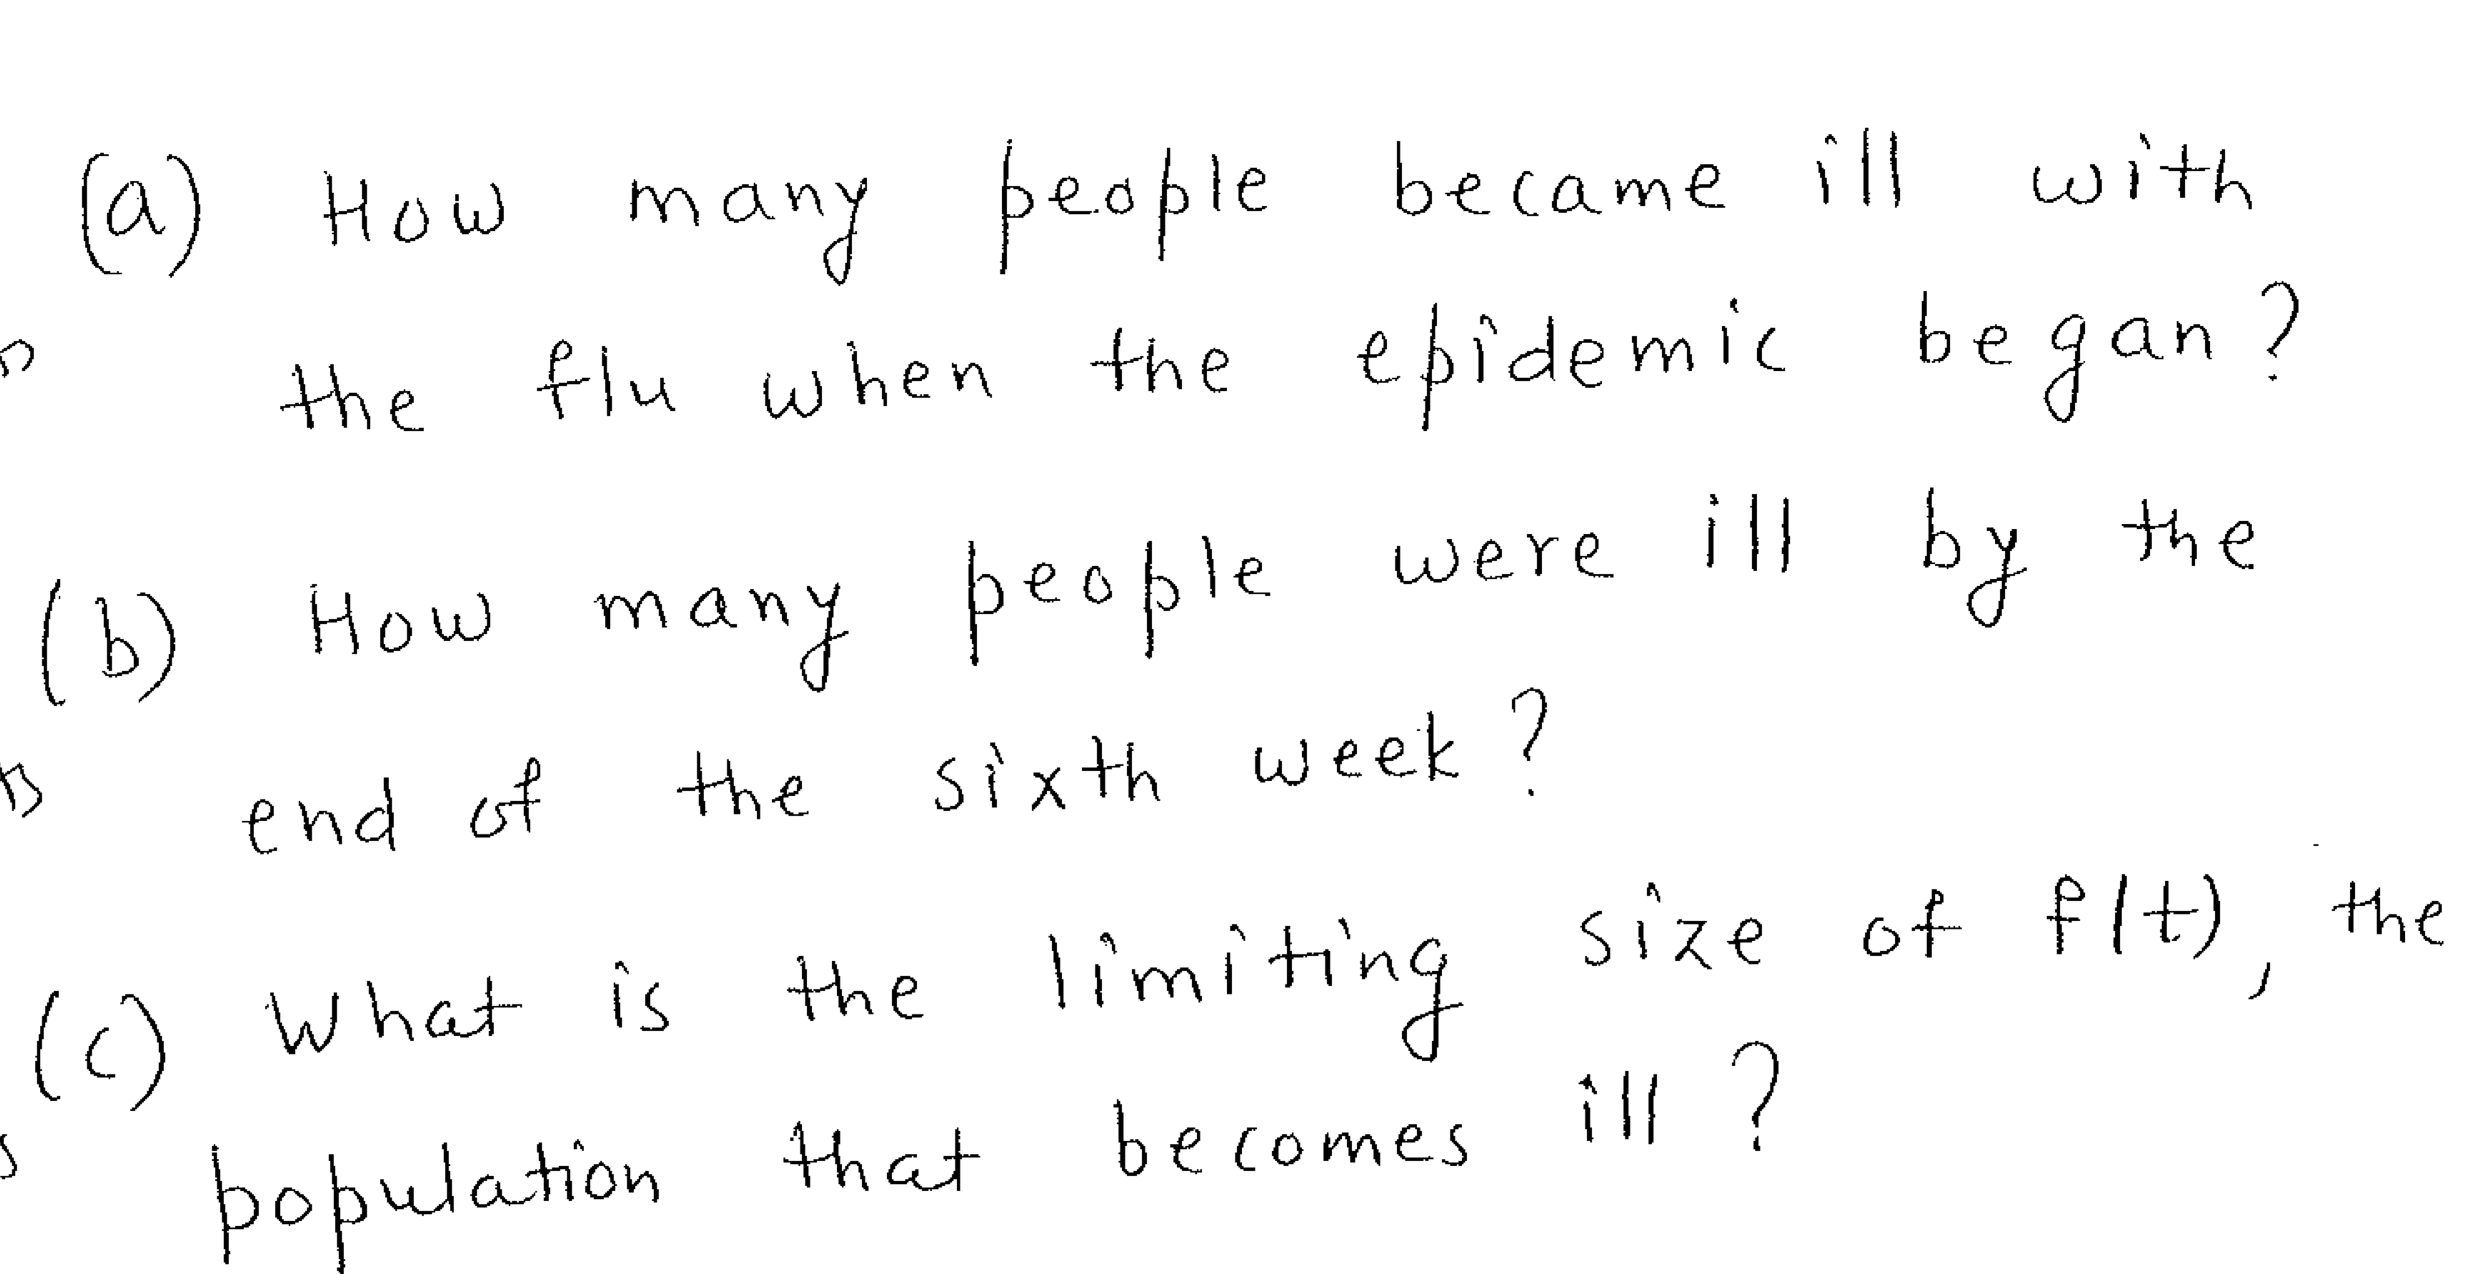 (a) How many people became ill with
the flu when the epidemic began?
(b) How many people were ill by the
end of the sixth week?
(c) What is the limiting size of f(t), the
population that becomes ill?